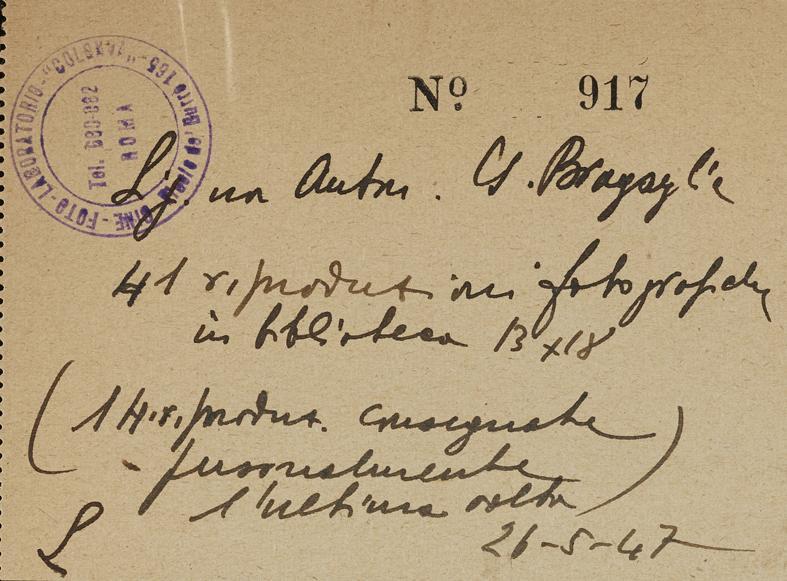 CINE - FOTO - LABORATORIO - "COLSEXA"
Tel. 680-882
ROMA
Nº 917
Sig.na Anton. G. Bragaglia
41 riproduzioni fotografiche
in biblioteca 13x18
(14 riproduz. consegnate
personalmente
l'ultima volta)
26-5-47